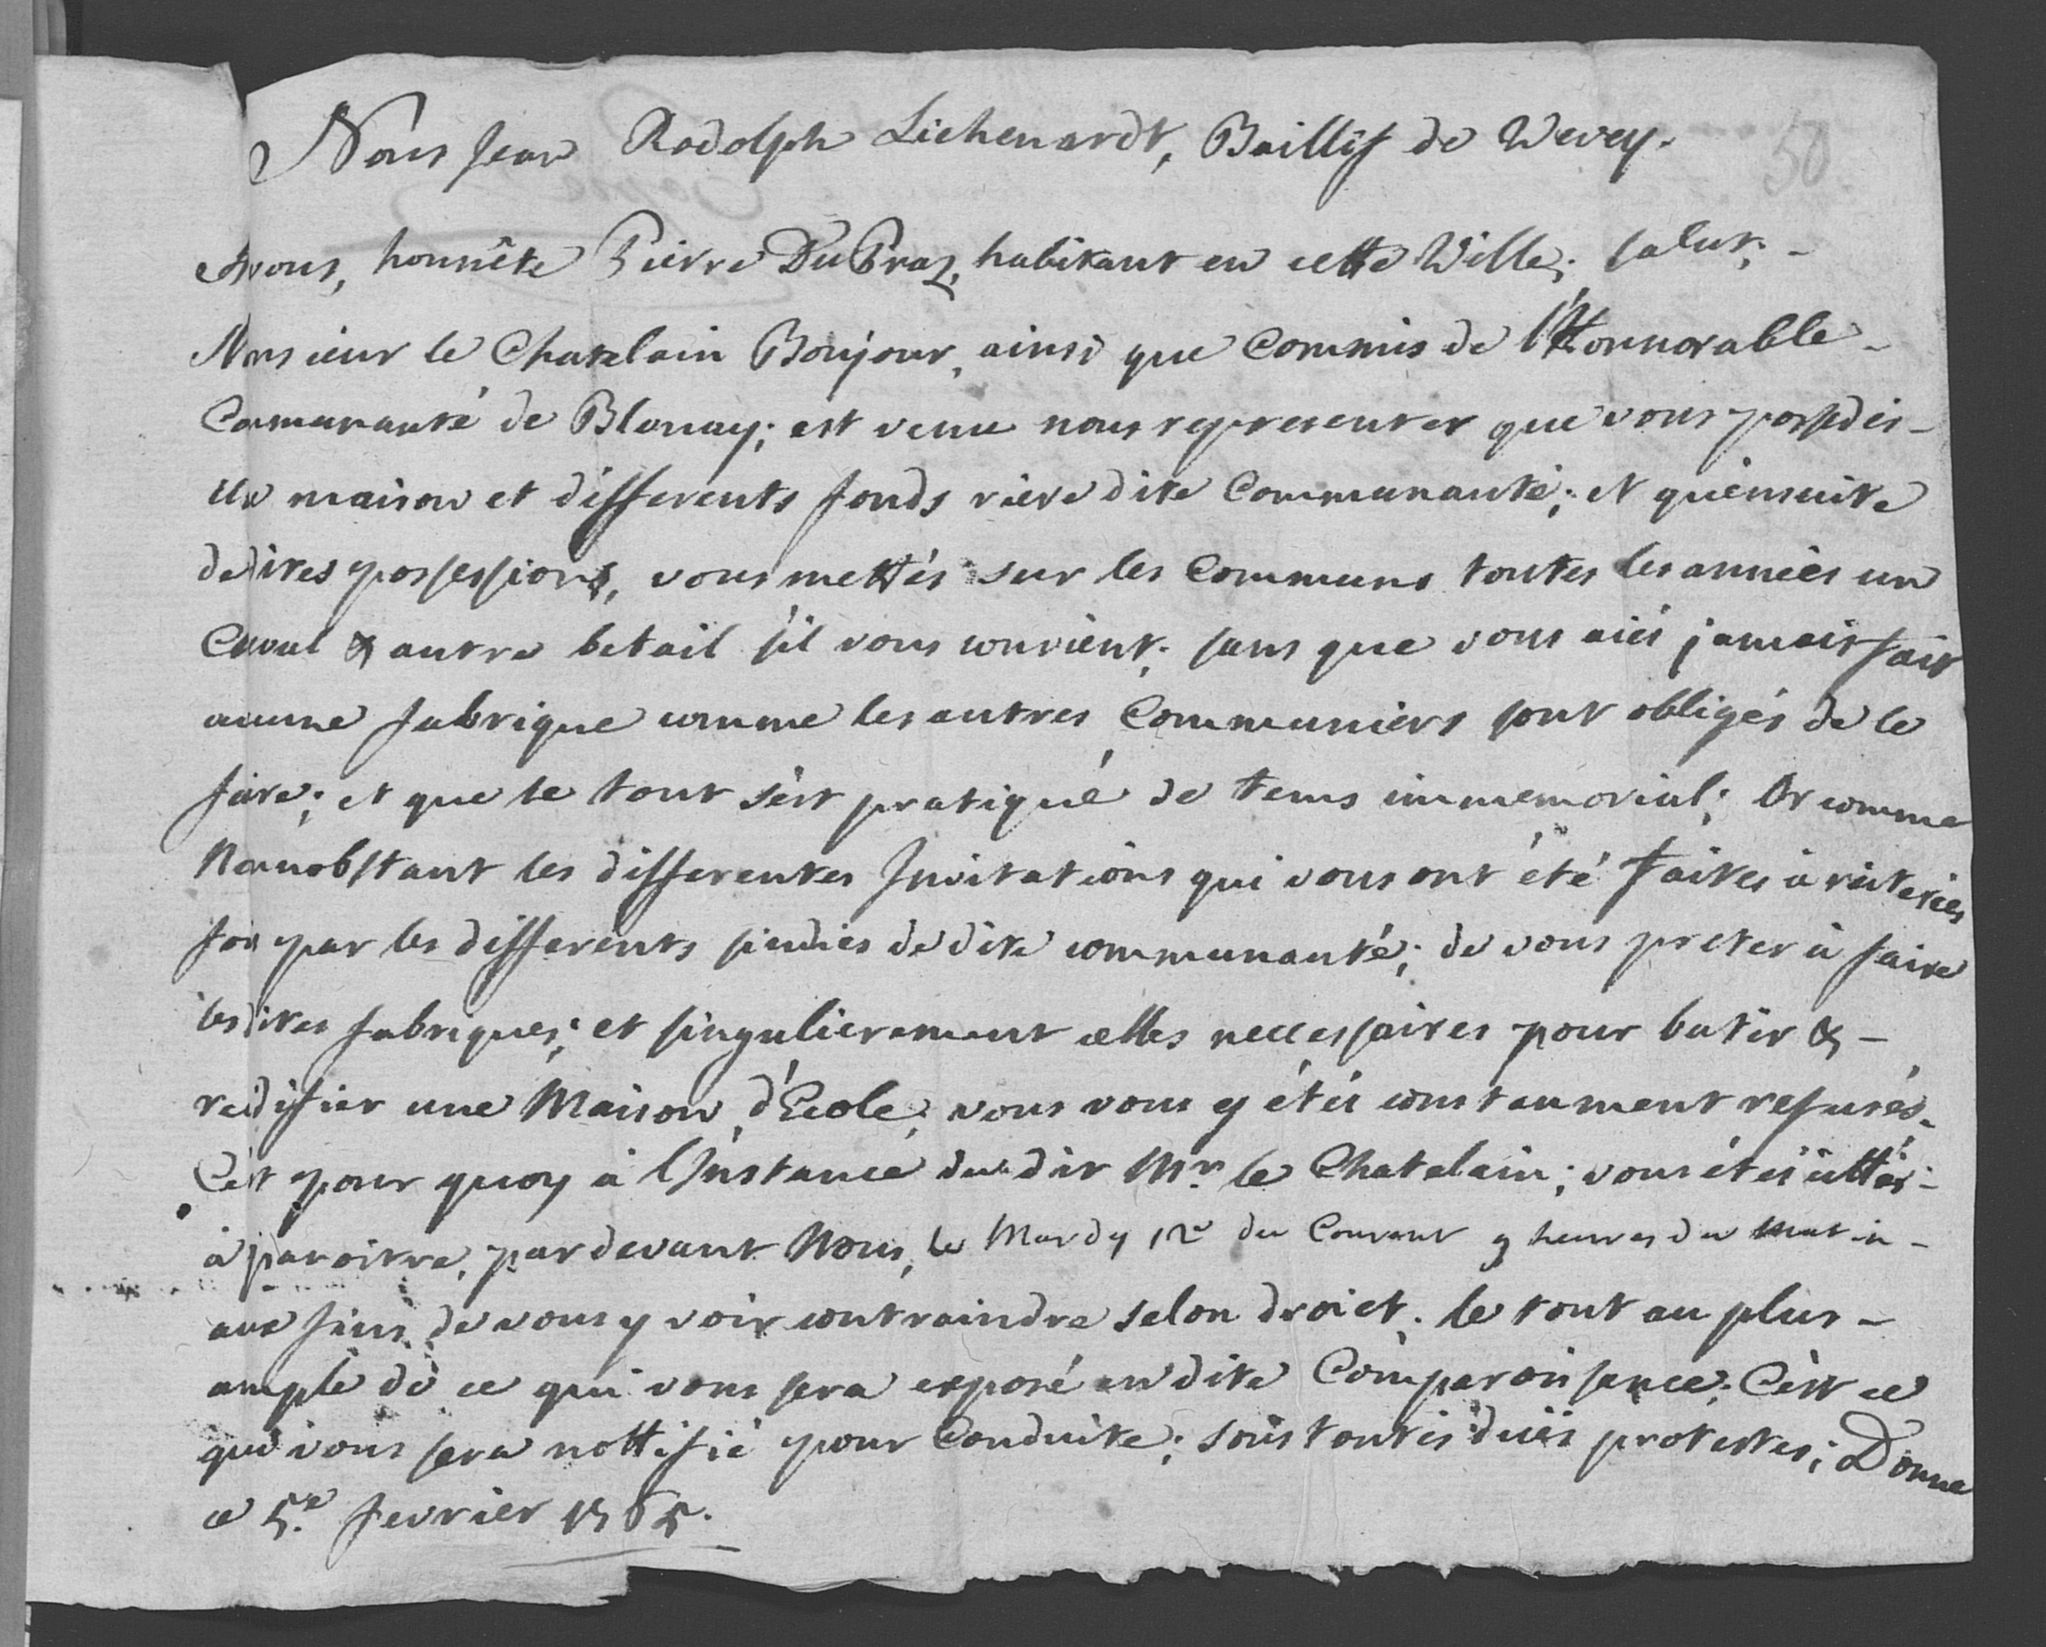 50
Nous Jean Rodolph Lichenardt, Baillif de Wevey.
A vous, honnête Pierre DuPraz, habitant en cette Ville; salut; -
Monsieur le Chatelain Boujour, ainsi que Commis de l'Honnorable -
Comunauté de Blonay; est venu nous representer que vous possedés -
Une maison et differents fonds riere dite Communauté; et qu'ensuite
dedites possessions, vous mettés sur les Communs toutes les années un
Cheval & autre betail s'il vous convient; sans que vous aiés jamais fait
aucune fabrique comme les autres Communiers sont obligés de le
faire; et que le tout s'est pratiqué de tems immemorial; Or comme
Nonnobstant les differentes Invitations qui vous ont été faites à reiterées
fois par les differents sindics de dite communauté; de vous preter à faire
lesdites fabriques; et singulierement celles neccessaires pour batir & -
reidifier une Maison d'Ecole; vous vous y étés constamment refusés.
C'est pour quoy à l'Instance du dit Mr. le Chatelain; vous étés cittés -
à paroitre, pardevant Nous, le Mardy 12e du Courant 9 heures du Matin -
aux fins de vous y voir contraindre selon droict. le tout au plus -
ample de ce qui vous sera exposé en dite Comparoissance; C'est ce
qui vous sera nottifié pour Conduite; sous toutes dües protestes; Donne
ce 5.e fevrier 1765.